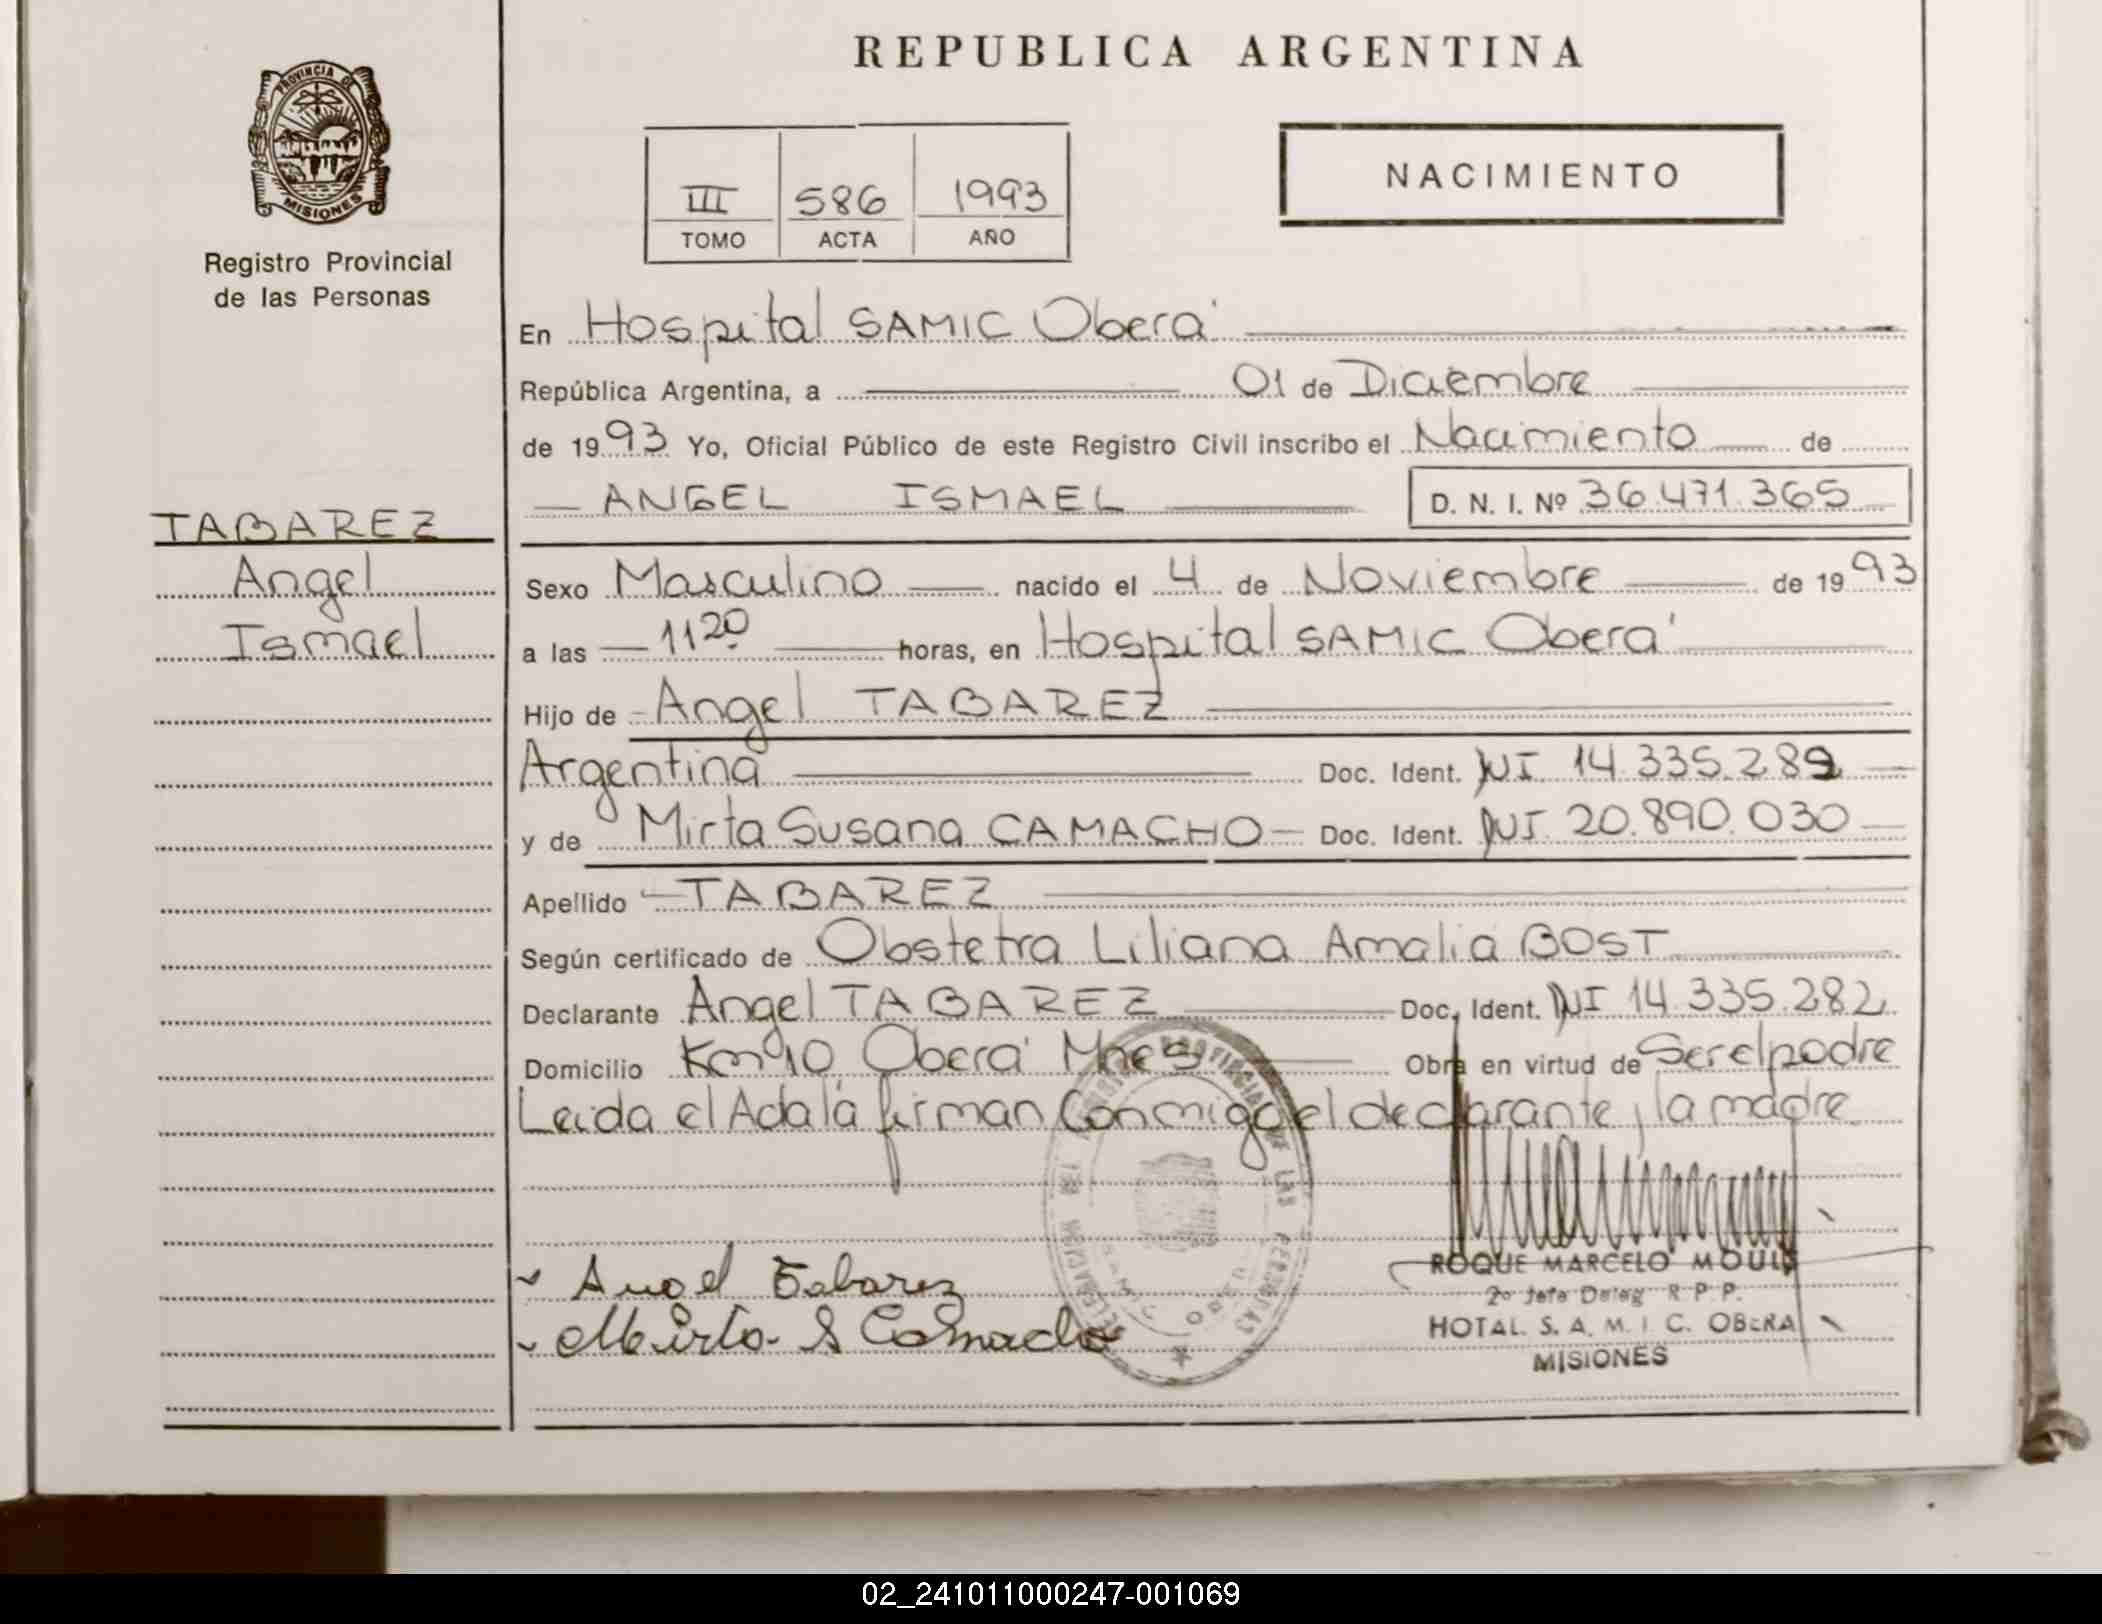 REPUBLICA ARGENTINA
PROVINCIA DE
MISIONES
Registro Provincial
de las Personas
III 586 1993
TOMO ACTA AÑO
NACIMIENTO
En Hospital SAMIC Oberá
República Argentina, a 01 de Diciembre
de 1993 Yo, Oficial Público de este Registro Civil inscribo el Nacimiento de
ANGEL ISMAEL D. N. I. Nº 36.471.365
TABAREZ
Angel
Ismael
Sexo Masculino nacido el 4 de Noviembre de 1993
a las 11 20 horas, en Hospital SAMIC Oberá
Hijo de Angel TABAREZ
Argentina Doc. Ident. DNI 14.335.282
y de Mirta Susana CAMACHO Doc. Ident. DNI. 20.890.030
Apellido TABAREZ
Según certificado de Obstetra Liliana Amalia BOST
Declarante Angel TABAREZ Doc. Ident. DNI 14.335.282
Domicilio Km 10 Oberá Mnes Obra en virtud de Ser el padre
Leida el Acta la firman Conmigo el declarante y la madre
Angel Tabarez
Mirta S Camacho
ROQUE MARCELO MOULS
2º Jefe Deleg R. P. P.
HOTAL. S. A. M. I. C. OBERA
MISIONES
02_241011000247-001069